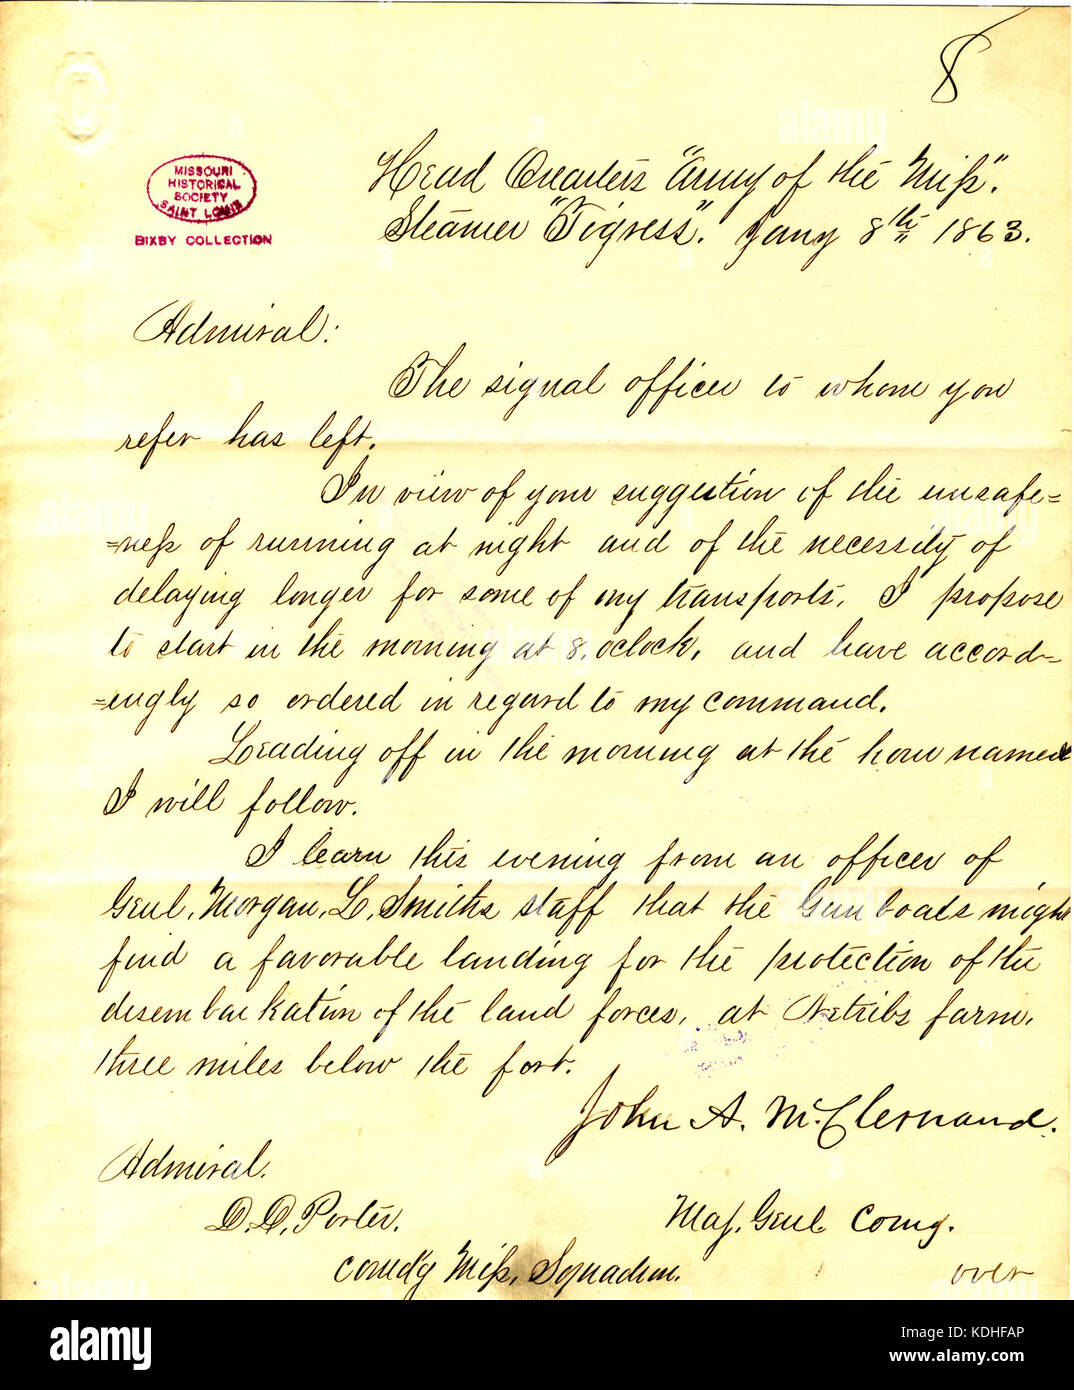 8
MISSOURI
HISTORICAL
SOCIETY
SAINT LOUIS
BIXBY COLLECTION
Head Quarters "Army of the Miss".
Steamer "Tigress". Jany 8th 1863.
Admiral:
The signal officer to whom you
refer has left.
In view of your suggestion of the unsafe=
=ness of running at night and of the necessity of
delaying longer for some of my transports, I propose
to start in the morning at 8, oclock, and have accord=
=engly so ordered in regard to my command.
Leading off in the morning at the hour named
I will follow.
I learn this evening from an officer of
Genl, Morgan, L, Smiths staff that the Gun boats might
find a favorable landing for the protection of the
disembarkation of the land forces, at farm,
three miles below the fort.
John A. McClernand.
Admiral.
D. D. Porter.
Maj. Genl. Comg.
Comd'g Miss, Squadron.
over
alamy
Image ID: KDHFAP
www.alamy.com